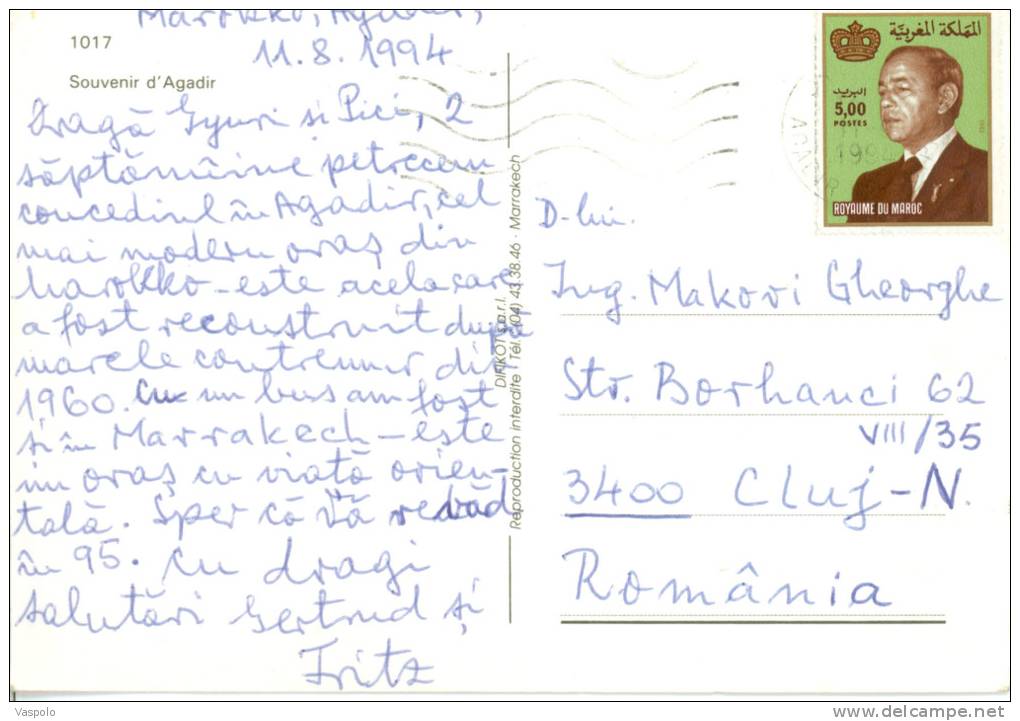 Marokko, Agadir,
11.8.1994
1017
Souvenir d'Agadir
Dragă Gyuri și Pici, 2
săptămîine petrecem
concediul în Agadir, cel
mai modern oraș din
Marokko - este acela care
a fost reconstruit după
marele contremur din
1960. Cu un bus am fost
și în Marrakech - este
un oraș cu viată orien-
tală. Sper că Vă revăd
în 95. Cu dragi
salutări Gertrud și
Fritz
DIFIKOT s.a.r.l.
Reproduction interdite Tél. (04) 43.38.46 - Marrakech
المملكة المغربية
البريد
5,00
POSTES
ROYAUME DU MAROC
AGADIR
1994
D-lui.
Ing. Makovi Gheorghe
Str. Borhanci 62
VIII/35
3400 Cluj-N.
România
Vaspolo
www.delcampe.net